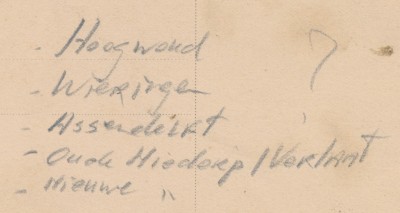 - Hoogwoud ?
- Wieringen
- Assendelft
- Oude Niedorp / Verlaat
- Nieuwe "